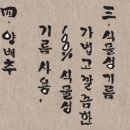 三. 식물성기름
가볍고 깔끔한
100% 식물성
기름 사용.
四. 양배추